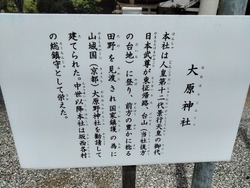 大原神社
本社は人皇第十二代景行天皇の御代
日本武尊が東征帰路、台山(当社後方
の台地)に登り、前方の豊かに稔る
田野を見渡され国家鎮護の為に
山城国(京都)大原野神社を勧請して
建てられた。中世以降本社は飯西各村
の総鎮守として栄えた。